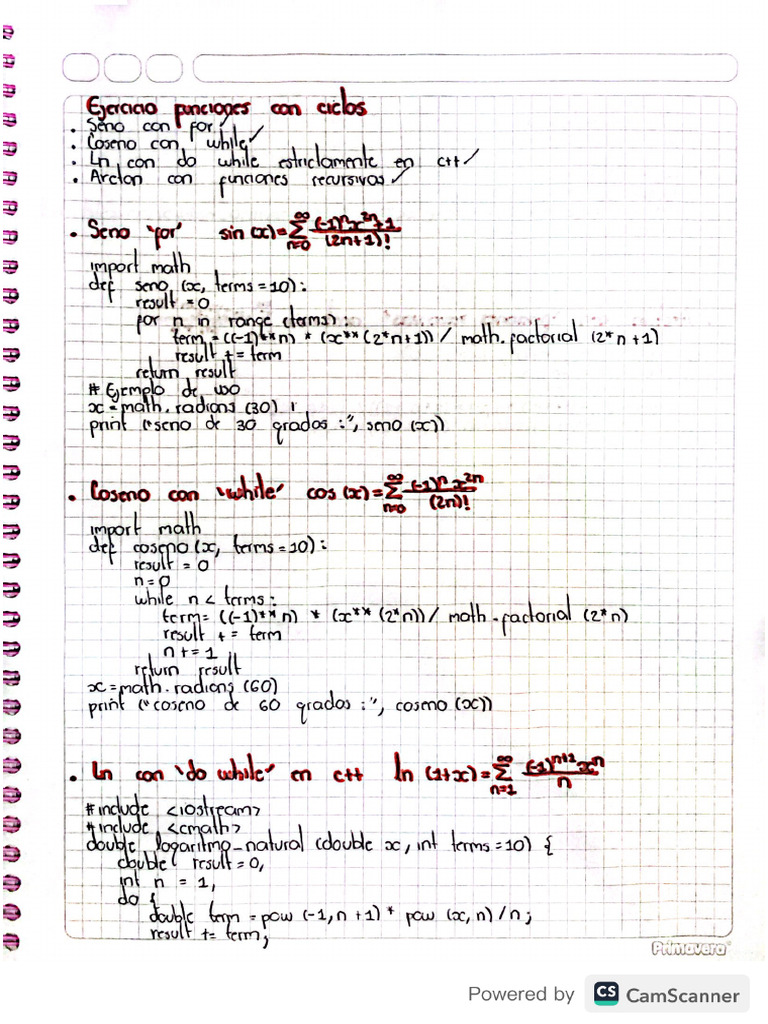 Ejercicio funciones con ciclos
• Seno con for ✓
• Coseno con while ✓
• Ln con do while estrictamente en c++ ✓
• Arctan con funciones recursivas ✓
• Seno 'for' sin(x)=∞∑n=0 (-1)^n x^2n+1 / (2n+1)!
import math
def seno (x, terms=10):
result =0
for n in range (terms):
term = ((-1)**n) * (x**(2*n+1)) / math.factorial (2*n+1)
result += term
return result
# Ejemplo de uso
x=math.radians (30)
print ("seno de 30 grados :", seno (x))
• Coseno con 'while' cos (x)=∞∑n=0 (-1)^n x^2n / (2n)!
import math
def coseno (x, terms=10):
result = 0
n=0
while n < terms:
term= ((-1)**n) * (x**(2*n)) / math.factorial (2*n)
result += term
n+=1
return result
x=math.radians (60)
print ("coseno de 60 grados :", coseno (x))
• Ln con 'do while' en c++ ln (1+x)=∞∑n=1 (-1)^n+1 x^n / n
#include <iostream>
#include <cmath>
double logaritmo_natural (double x, int terms=10) {
double result=0,
int n = 1,
do {
double term = pow (-1,n+1) * pow (x,n) /n;
result += term;
Primavera
Powered by CS CamScanner